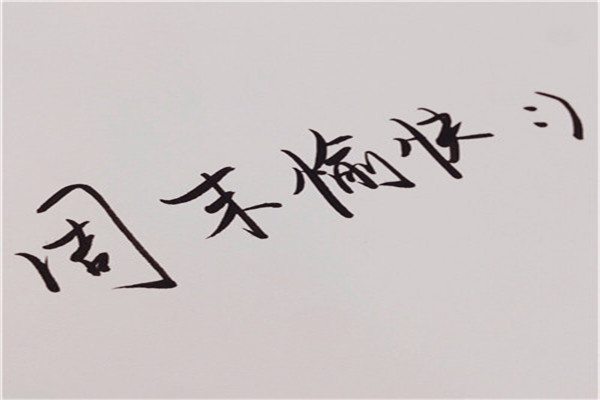 周末愉快 :)